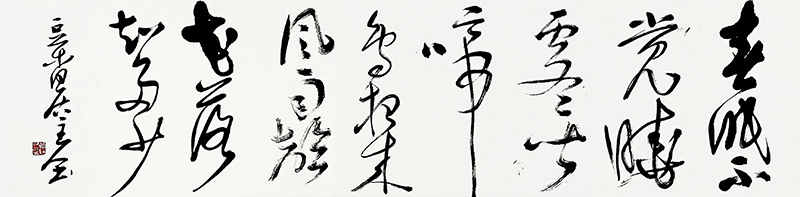 春眠不
觉晓
處々闻
啼
鸟夜来
風雨聲
花落
知多少